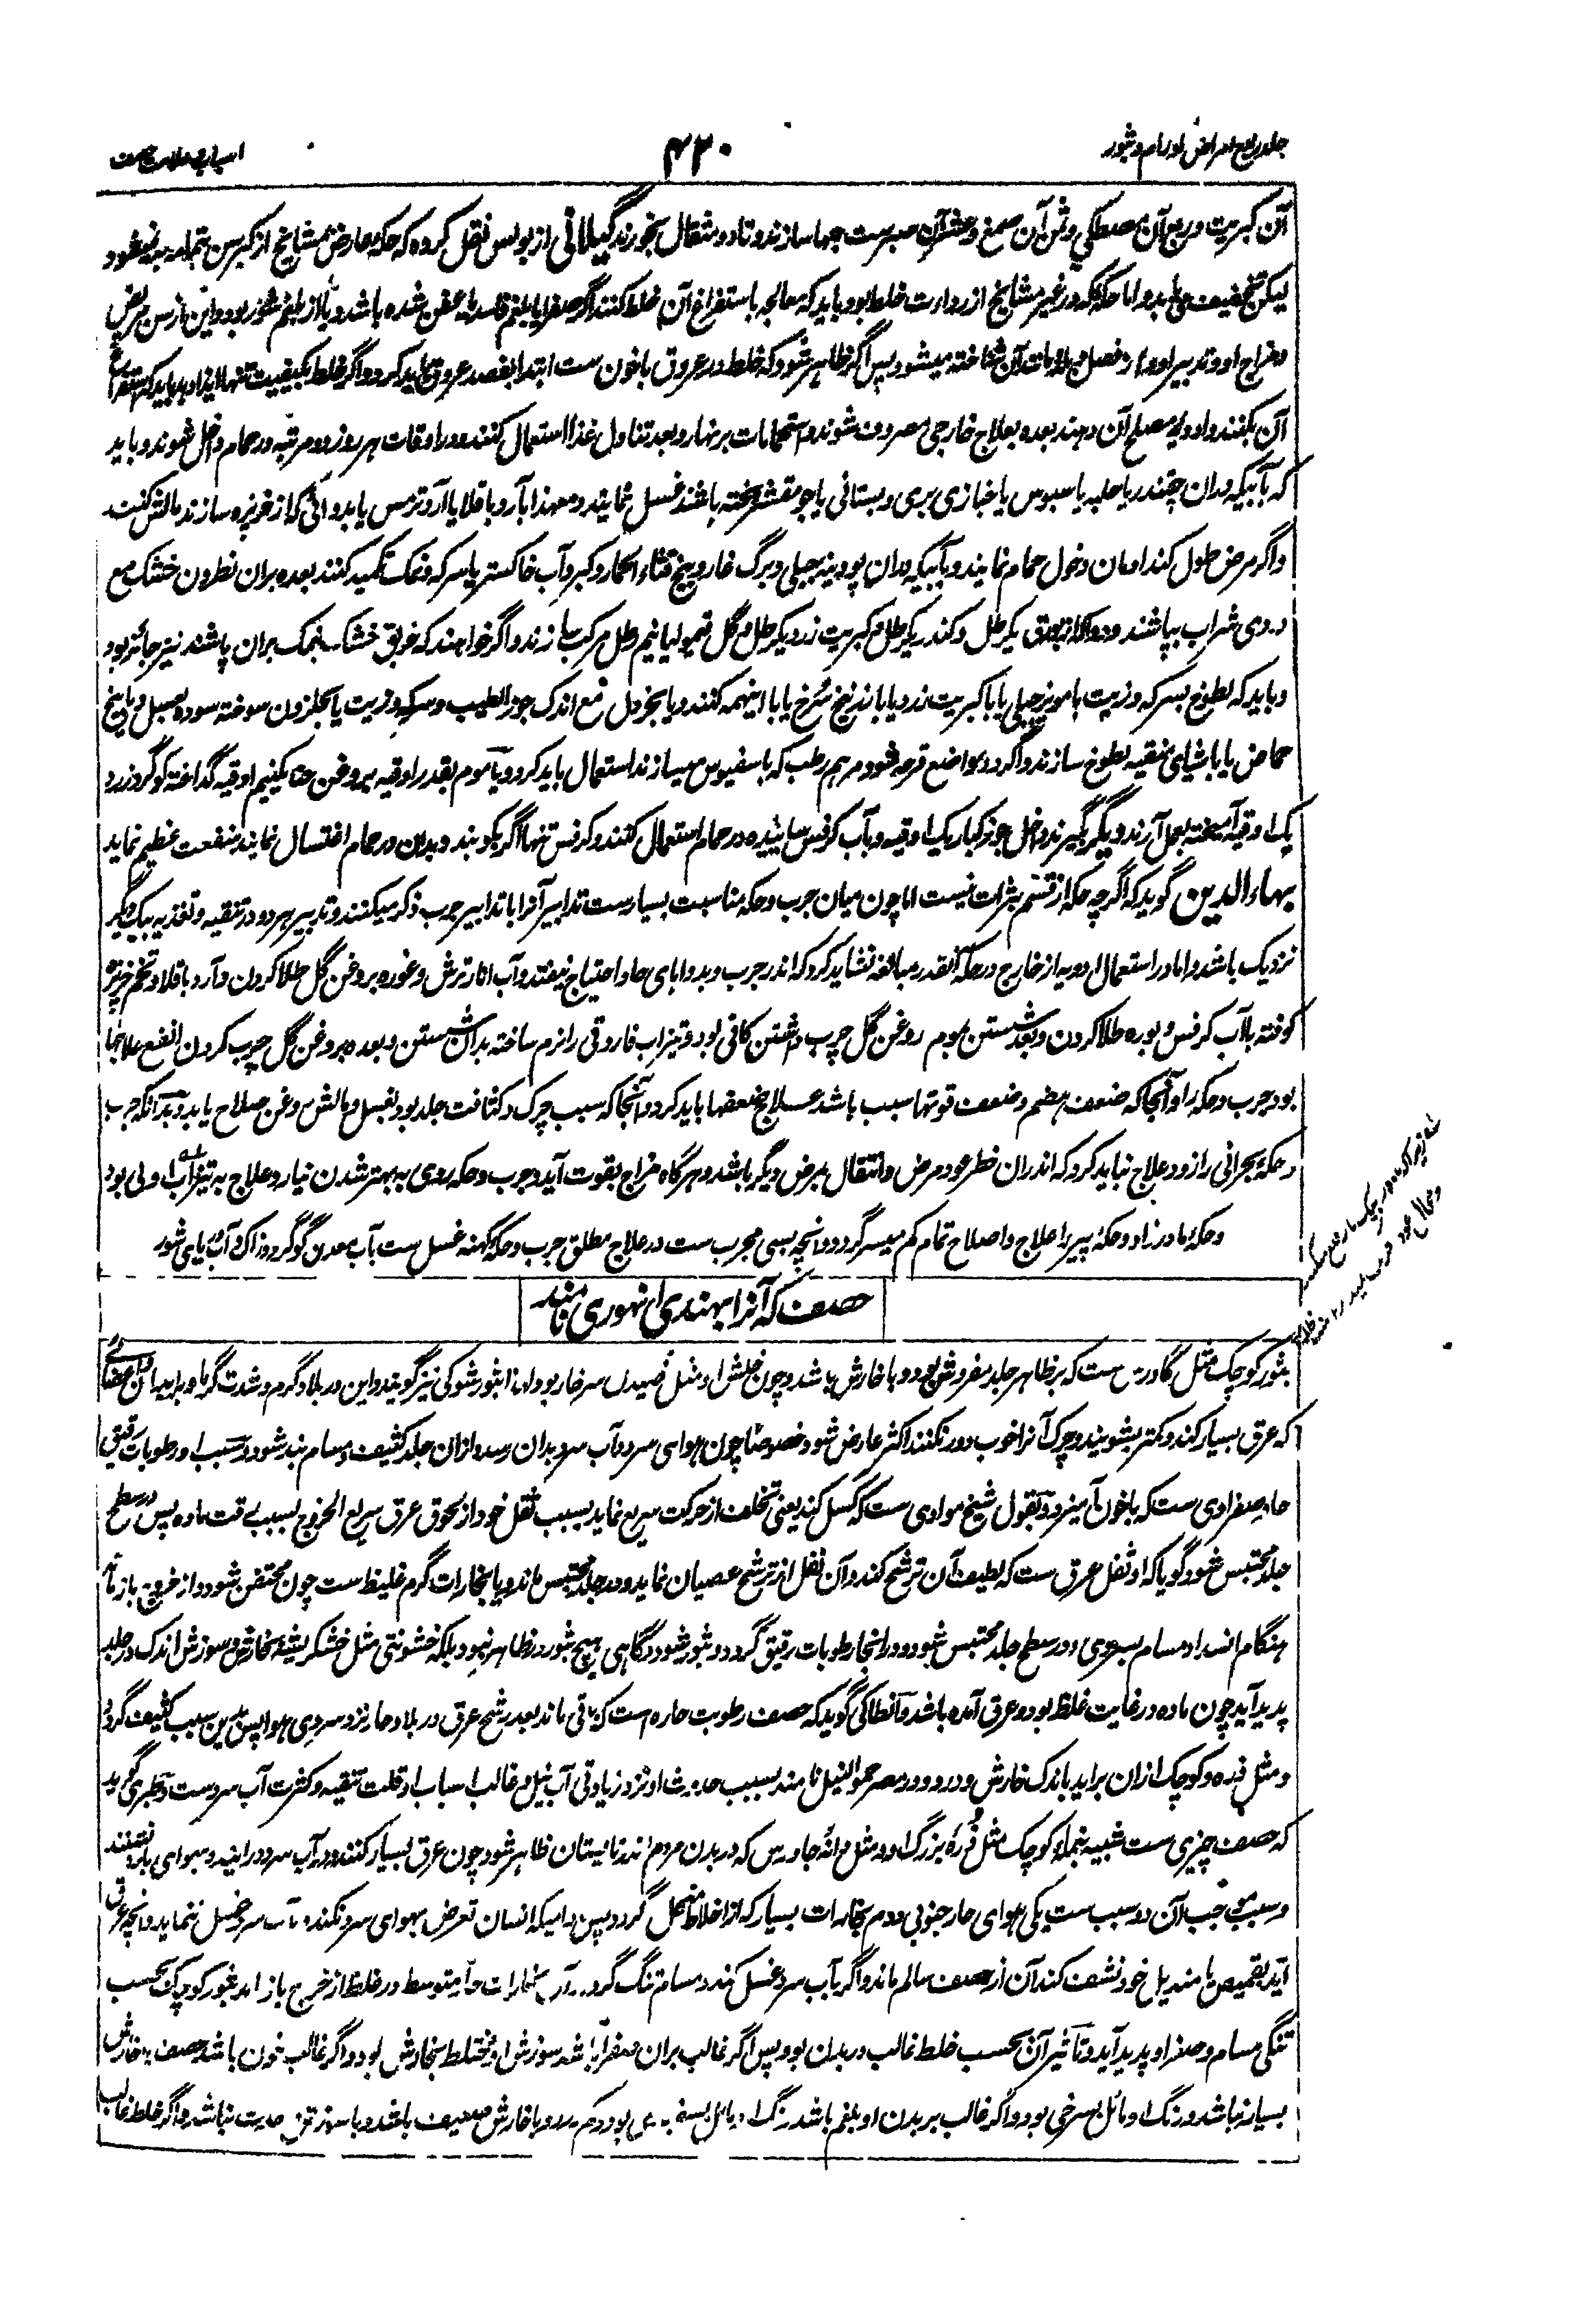 جلد رابع امراض اورام و ثبور
۴۳۰
اسباب و علامت حصف
آن کبریت و ربع آن مصطکی و ثمن آن صمغ و عشر آن صبرست حبها سازند و تا دو مثقال بخورند گیلانی از بولس نقل کرده که حکهٔ عارض مشایخ از کبر سن بتمامه
لیکن تخفیف می یابد و اما حکهٔ که در غیر مشایخ از رداءت خلط بود باید که معالجه باستفراغ آن خلط کنند اگر صفرا یا بلغم فاسد یا عفن شده باشد و یا از بلغم شور بود و این از سن مریض
و مزاج او و تدبیر او و از فصل و علامات آن شناخته میشود پس اگر ظاهر شود که خلط در عروق با خون ست ابتدا بفصد عروق باید کرد و اگر خلط بکیفیت تنها ایذا دهد باید که استفراغ
آن بکنند و ادویهٔ مصلح آن دهند بعده بعلاج خارجی مصروف شوند و استحمامات بر نهار و بعد تناول غذا استعمال کنند و در اوقات هر روز دو مرتبه در حمام داخل شوند و باید
که بآبیکه دران چقندر یا حلبه یا سبوس یا خبازی بری و بستانی یا جو مقشر پخته باشند غسل نمایند و معهذا بآرد باقلا یا آرد ترمس یا بدوائی که از خرپزه سازند مالش کنند
و اگر مرض طول کند ادمان دخول حمام نمایند و بآبیکه دران پودینه جبلی و برگ غار و بیخ قثاء الحمار و کبر و آب خاکستر یا سرکه و نمک تکمید کنند بعده بران نطرون خشک مع
دردی شراب بپاشند و دوا که از بورق یکرطل و کندر یکرطل و کبریت زرد یکرطل و گل قیمولیا نیم رطل مرکب سازند و اگر خواهند که خربق خشک بنمک بران پاشند نیز جائز بود
و باید که لطوخ بسرکه و زیت با مویزج جبلی یا با کبریت زرد یا با زرنیخ سرخ یا با اینهمه کنند و یا بخردل مع اندک جوز الطیب و سرکه و زیت یا بحلزون سوخته سوده بعسل و یا بیخ
حماض یا باشیای منقیه لطوخ سازند و اگر در مواضع قرحه شود مرهم رطب که باسفیوس میسازند استعمال باید کرد و یا موم بقدر اوقیه بروغن حنا یکنیم اوقیه گداخته گوگرد زرد
یک اوقیه آمیخته بعمل آرند و دیگر بگیرند داخل جوز کبار یک اوقیه و بآب کرفس سائیده در حمام استعمال کنند و کرفس تنها اگر بکوبند و بدین در حمام اغتسال نمایند منفعت عظیم نماید
بهاء الدین گوید که اگرچه حکه از قسم بثرات نیست اما چون میان جرب و حکه مناسبت بسیارست تدابیر آنرا با تدابیر جرب ذکر میکنند و تدبیر هر دو در تنقیه و تغذیه بیک دیگر
نزدیک باشد و اما در استعمال ادویه از خارج در حکه آنقدر مبالغه نشاید کرد که اندر جرب و بدواهای حاد احتیاج نیفتد و آب انار ترش و غوره بروغن گل طلا کردن و آرد باقلا و تخم خربزه
کوفته بآب کرفس و بوره طلا کردن و بعد شستن بموم روغن گل چرب داشتن کافی بود و تیزاب فاروقی را نرم ساخته بدان شستن و بعده بروغن گل چرب کردن انفع علاجها
بود جرب و حکه را و آنجا که ضعف هضم و ضعف قوتها سبب باشد علاج ضعفها باید کرد و آنجا که سبب چرک و کثافت جلد بود بغسل و مالش روغن صلاح یابد و بدانکه جرب
و حکهٔ بحرانی را زود علاج نباید کرد که اندران خطر عود مرض و انتقال بمرض دیگر باشد و هرگاه مزاج بقوت آید و جرب و حکه روی به بهتر شدن نیارد علاج به تیزاب اولی بود
و حکهٔ مادرزاد و حکهٔ پیر را علاج و اصلاح تمام کم میسر گردد و آنچه بسی مجرب ست در علاج مطلق جرب و حکهٔ کهنه غسل ست بآب معدن گوگرد و زاک و آب دریای شور
حصف که آنرا بهندی انهوری نامند
بثور کوچک مثل گاورس ست که بر ظاهر جلد مفروش بود و با خارش باشد و چون خلش او مثل خلیدن سر خار بود لهذا بثور شوکی نیز گویند و این در بلاد گرم و شدت گرما و بابدان و اعضای
که عرق بسیار کند و کمتر بشویند و چرک آنرا خوب دور نکنند اکثر عارض شود خصوصا چون هوای سرد و آب سرد بدان رسد و ازان جلد کثیف و مسام بند شود و سبب او رطوبات رقیق
حاد صفراوی ست که با خون آمیزد و بقول شیخ موادی ست که کسل کند یعنی تخلف از حرکت سریع نماید بسبب ثقل خود از لحوق عرق سریع الخروج بسبب رقت ماده پس در سطح
جلد محتبس شود گویا که او ثفل عرق ست که لطیف آن ترشح کند و آن ثفل از ترشح عصیان نماید و در جلد محتبس ماند و یا بخارات گرم غلیظ ست چون محتقن شود و از خروج باز ماند
هنگام انسداد مسام بسردی و در سطح جلد محتبس شود و در انجا رطوبات رقیق گردد و بثور شود و گاهی هیچ بثور در ظاهر نبود بلکه خشونتی مثل خشکریشه و خارش و سوزش اندک در جلد
پدید آید چون ماده در غایت غلظ بود و عرق آمده باشد و انطاکی گوید که حصف رطوبت حاره است که باقی ماند بعد رشح عرق در بلاد حار نزد سردی هوا پس بدین سبب کثیف گردد
و مثل ذره و کوچک ازان براید باندک خارش و درد و در مصر حمو النیل نامند بسبب حدوث او نزد زیادتی آب نیل و غالب اسباب او قلت تنقیه و کثرت آب سردست و طبری گوید
که حصف چیزی ست شبیه بنمله کوچک مثل ذرهٔ بزرگ و مثل دانهٔ جاورس که در بدن مردم اندر تابستان ظاهر شود چون عرق بسیار کنند و در آب سرد درایند و بهوای بارد نشینند
و سبب موجب آن دو سبب ست یکی هوای حار جنوبی دوم بخارات بسیار که از اخلاط منحل گردد پس مادامیکه انسان تعرض بهوای سرد نکند و بآب سرد غسل ننماید و آنچه عرق
آید بقمیص یا مندیل خود نشف کند آن از حصف سالم ماند و اگر بآب سرد غسل کند و مسام تنگ گردد بخارات متوسط در غلظ از خروج باز بثور کوچک بحسب
تنگی مسام و صغر او پدید آید و تاثیر آن بحسب خلط غالب در بدن بود پس اگر غالب بران صفرا باشد سوزش او مختلط بخارش بود و اگر غالب خون باشد حصف با خارش
بسیار نباشد و رنگ او مائل بسرخی بود و اگر غالب بر بدن او بلغم باشد رنگ او مائل بسفیدی بود و با خارش ضعیف باشد و با سوزش نباشد و اگر خلط غالب